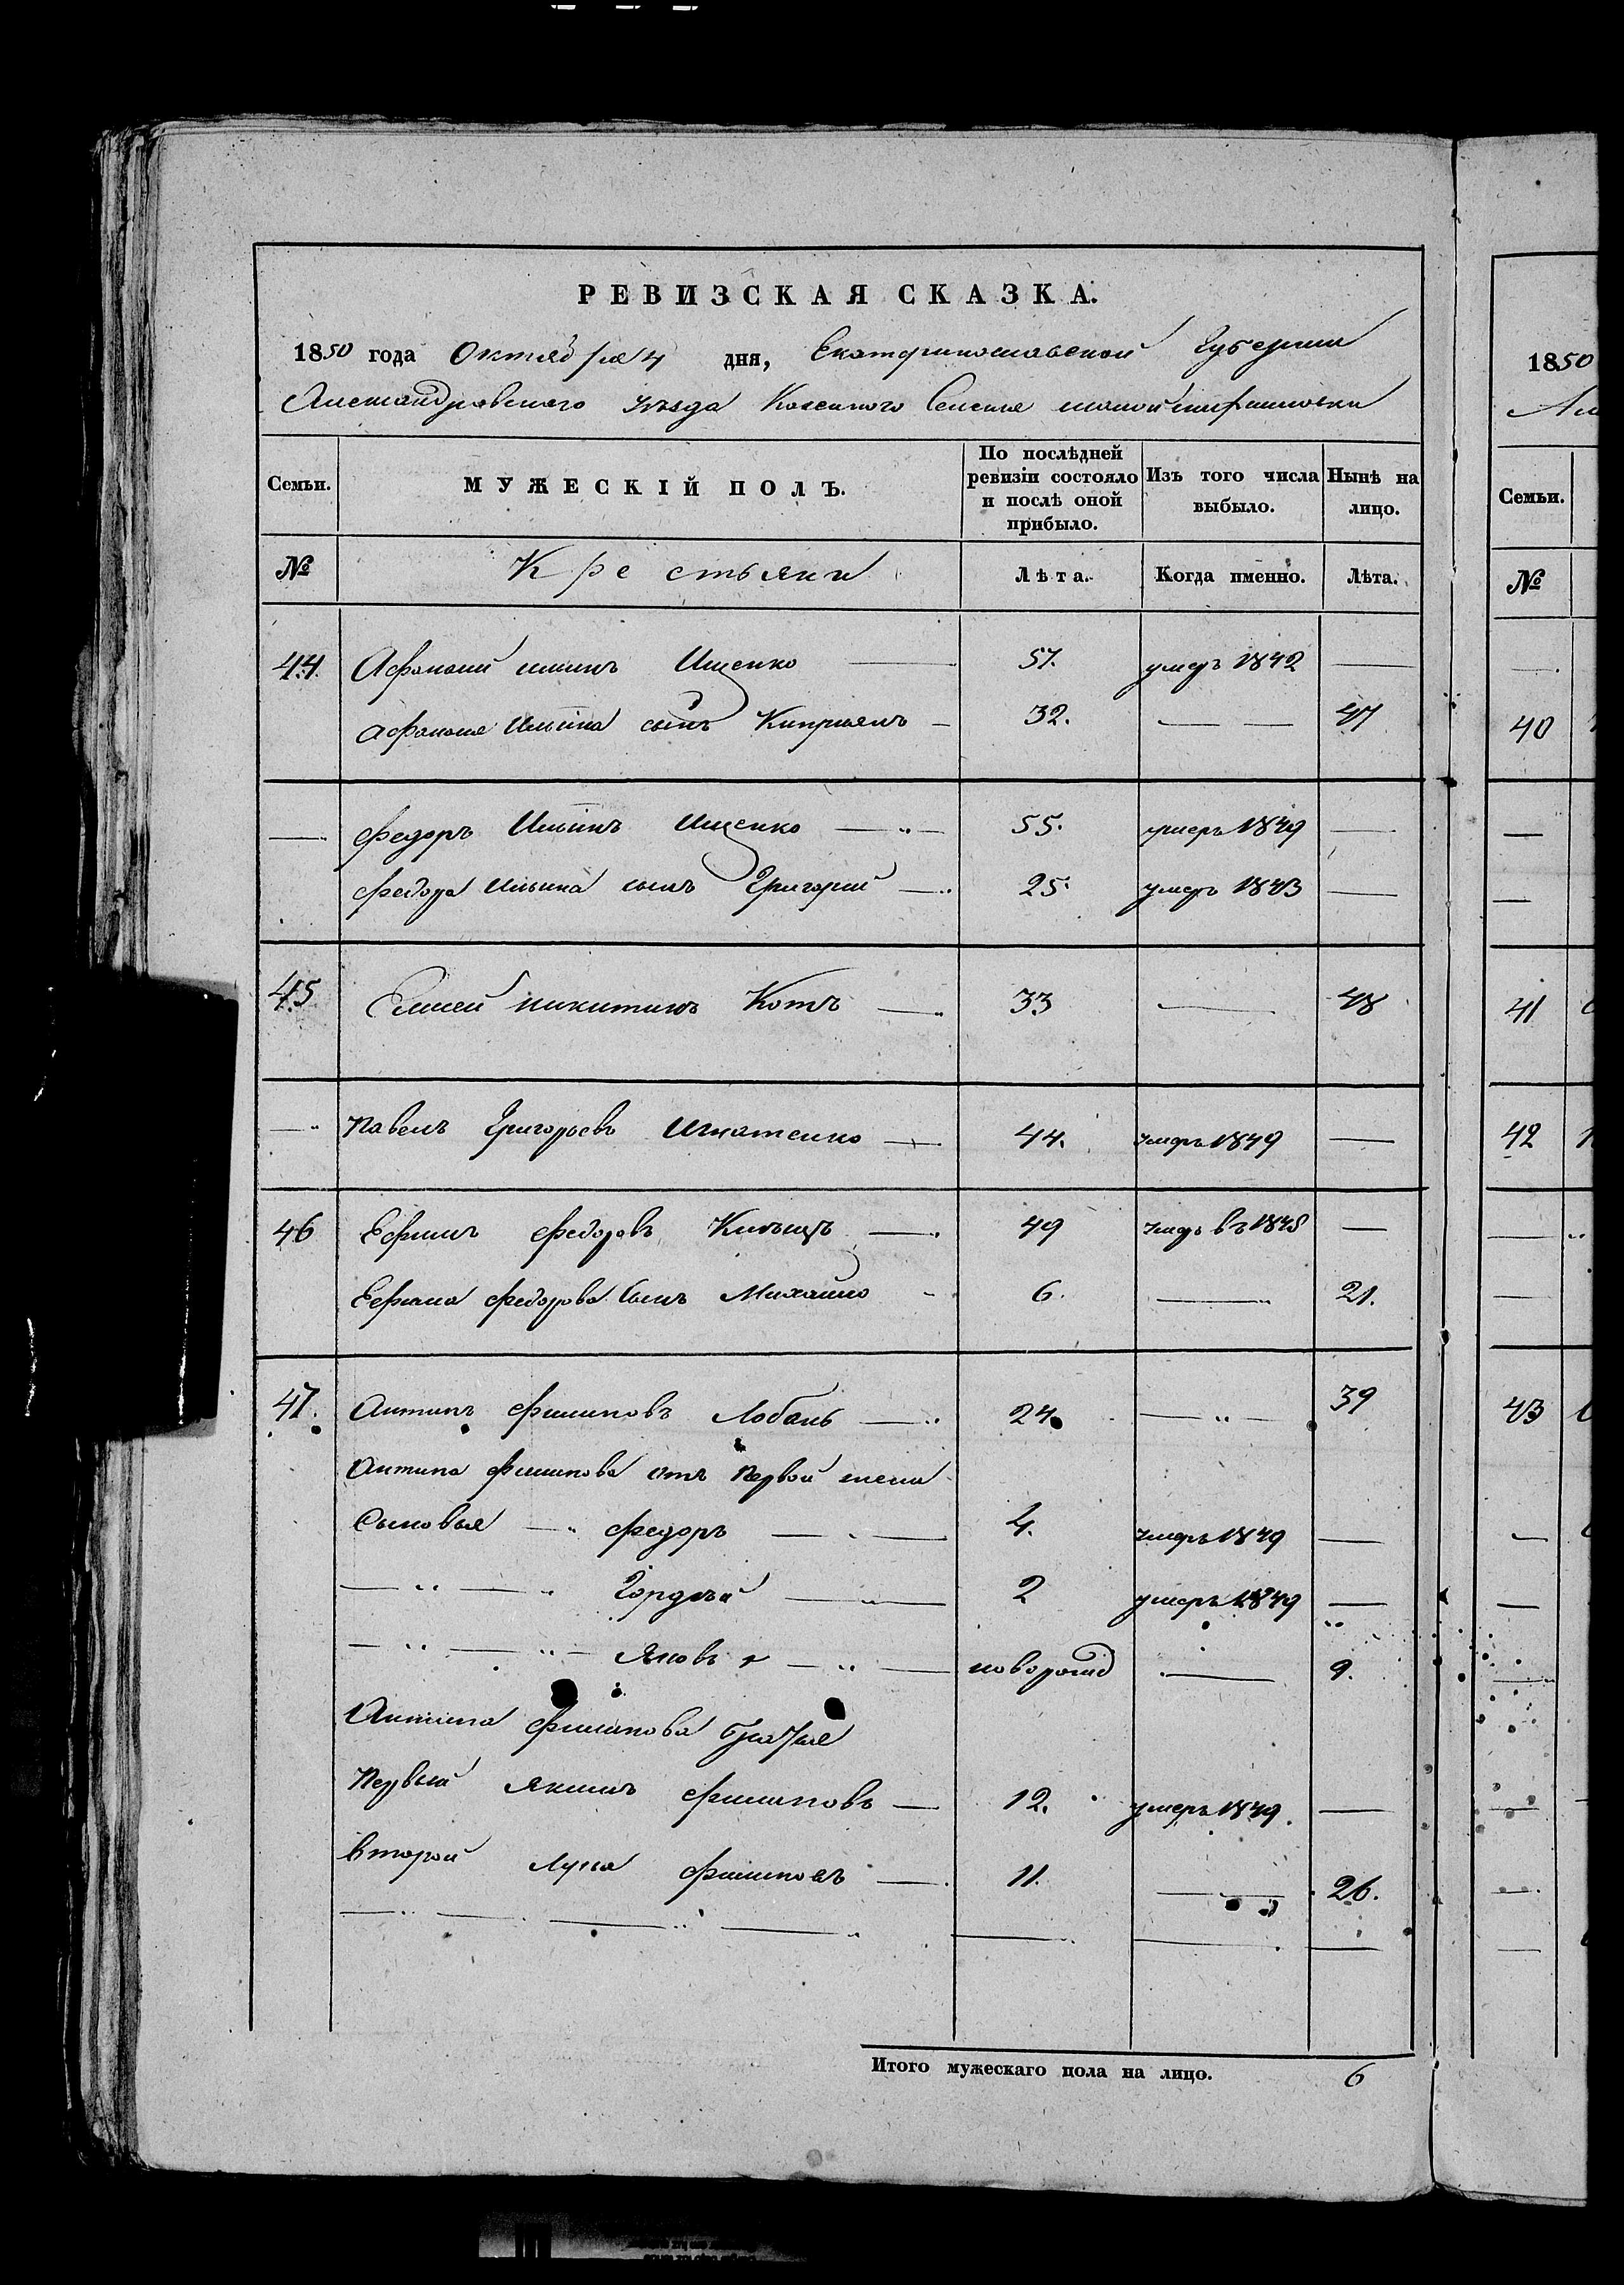 РЕВИЗСКАЯ СКАЗКА.
1850 года Октября 4 дня, Екатеринославской Губернии
Александровского уезда Казенного Селения
Семьи. МУЖЕСКІЙ ПОЛЪ. По послѣдней ревизіи состояло и послѣ оной прибыло. Изъ того числа выбыло. Нынѣ на лицо.
№ Крестьяни Лѣта. Когда именно. Лѣта.
44 Афонасий Ильинъ Ищенко 57. умеръ 1842
Афонасия Ильина сынъ Киприянъ 32. 47
Федоръ Ильинъ Ищенко 55. умеръ 1849
Федора Ильина сынъ Григорий 25. умеръ 1843
45 Елисей Никитинъ Котъ 33 48
Павелъ Григорьевъ Игнатенко 44. умеръ 1849
46 Ефимъ Федоровъ 49 умеръ въ 1848
Ефима Федорова сынъ Михайло 6. 21.
47. Антипъ Филиповъ Лобань 24. 39
Антипа Филипова отъ первой жены
Сыновья Федоръ 4. умеръ 1849
Гордѣй 2 умеръ 1849
Яковъ новорожд 9.
Антипа Филипова братья
Первый Якимъ Филиповъ 12. умеръ 1849.
второй Лука Филиповъ 11. 26.
Итого мужескаго пола на лицо. 6
1850
Семьи.
№
40
41
42
43